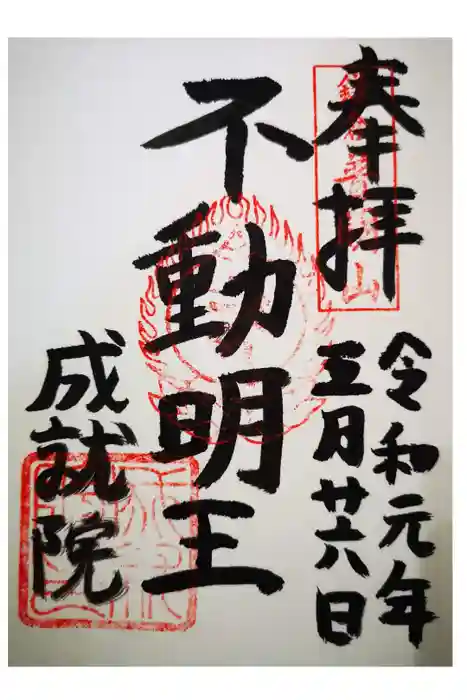 奉拝
令和元年
五月廿六日
不動明王
成就院